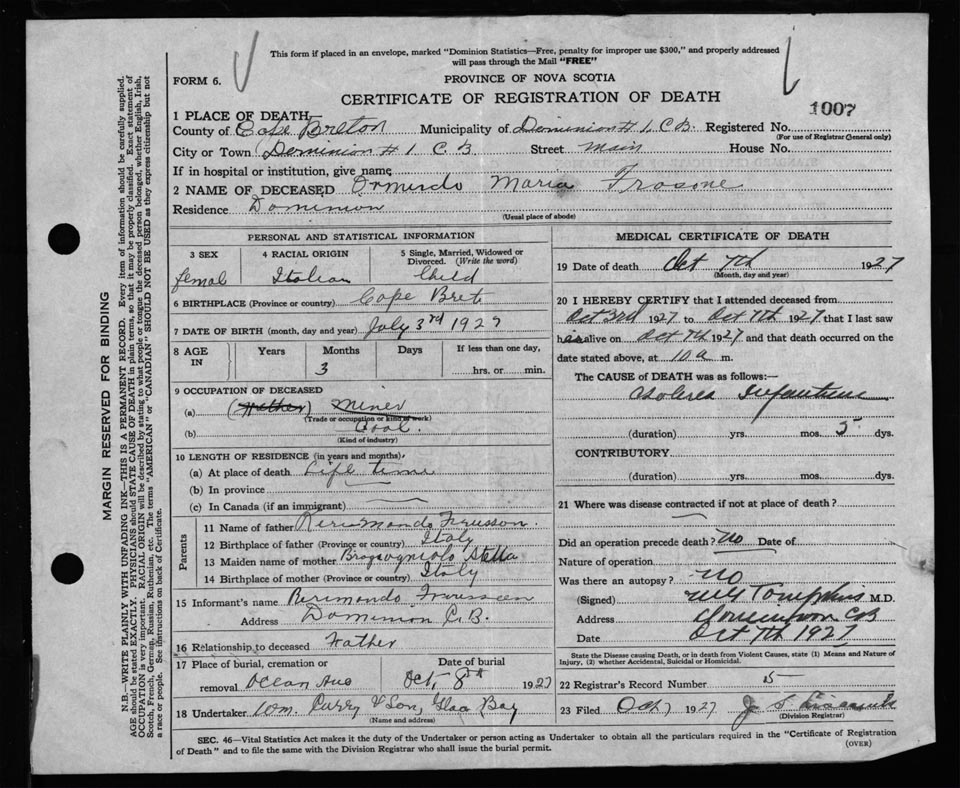 This form if placed in an envelope, marked "Dominion Statistics—Free, penalty for improper use $300," and properly addressed
will pass through the Mail "FREE"
FORM 6.
PROVINCE OF NOVA SCOTIA
CERTIFICATE OF REGISTRATION OF DEATH
1007
1 PLACE OF DEATH
County of Cape Breton Municipality of Dominion # 1, C.B. Registered No.
(For use of Registrar General only)
City or Town Dominion # 1 C B Street Main House No.
If in hospital or institution, give name
2 NAME OF DECEASED Ormindo Maria Frasone
Residence Dominion
(Usual place of abode)
PERSONAL AND STATISTICAL INFORMATION
3 SEX 4 RACIAL ORIGIN 5 Single, Married, Widowed or
Divorced. (Write the word)
femal Italian Child
6 BIRTHPLACE (Province or country) Cape Bret
7 DATE OF BIRTH (month, day and year) July 3rd 1927
8 AGE IN Years Months Days If less than one day,
3 hrs. or min.
9 OCCUPATION OF DECEASED
(a) (Father) miner
(Trade or occupation or kind of work)
(b) Coal.
(Kind of industry)
10 LENGTH OF RESIDENCE (in years and months)
(a) At place of death Life time
(b) In province
(c) In Canada (if an immigrant)
Parents
11 Name of father
12 Birthplace of father (Province or country) Italy
13 Maiden name of mother Stella
14 Birthplace of mother (Province or country) Italy
15 Informant's name
Address Dominion C.B.
16 Relationship to deceased Father
17 Place of burial, cremation or Date of burial
removal Ocean Ave Oct 8th 1927
18 Undertaker Wm. Curry & Son, Glace Bay
(Name and address)
MEDICAL CERTIFICATE OF DEATH
19 Date of death Oct 7th 1927
(Month, day and year)
20 I HEREBY CERTIFY that I attended deceased from
Oct 3rd 1927 to Oct 7th 1927 that I last saw
h alive on Oct 7th 1927 and that death occurred on the
date stated above, at 10 a m.
The CAUSE OF DEATH was as follows:—
Cholera Infantum
(duration) yrs. mos. 5 dys.
CONTRIBUTORY
(duration) yrs. mos. dys.
21 Where was disease contracted if not at place of death?
Did an operation precede death? No Date of
Nature of operation
Was there an autopsy? No
(Signed) Tompkins M.D.
Address Dominion CB
Date Oct 7th 1927
State the Disease causing Death, or in death from Violent Causes, state (1) Means and Nature of
Injury, (2) whether Accidental, Suicidal or Homicidal.
22 Registrar's Record Number 5
23 Filed Oct 7 1927 J S
(Division Registrar)
SEC. 46—Vital Statistics Act makes it the duty of the Undertaker or person acting as Undertaker to obtain all the particulars required in the "Certificate of Registration
of Death" and to file the same with the Division Registrar who shall issue the burial permit.
(OVER)
MARGIN RESERVED FOR BINDING
N.B.—WRITE PLAINLY WITH UNFADING INK—THIS IS A PERMANENT RECORD. Every item of information should be carefully supplied.
AGE should be stated EXACTLY. PHYSICIANS should STATE CAUSE OF DEATH in plain terms, so that it may be properly classified. Exact statement of
OCCUPATION is very important. RACIAL ORIGIN will be described by stating to what people or tongue the deceased person belonged, whether English, Irish,
Scotch, French, German, Russian, Ruthenian, etc. The terms "AMERICAN" or "CANADIAN" SHOULD NOT BE USED as they express citizenship but not
a race or people. See instructions on back of Certificate.